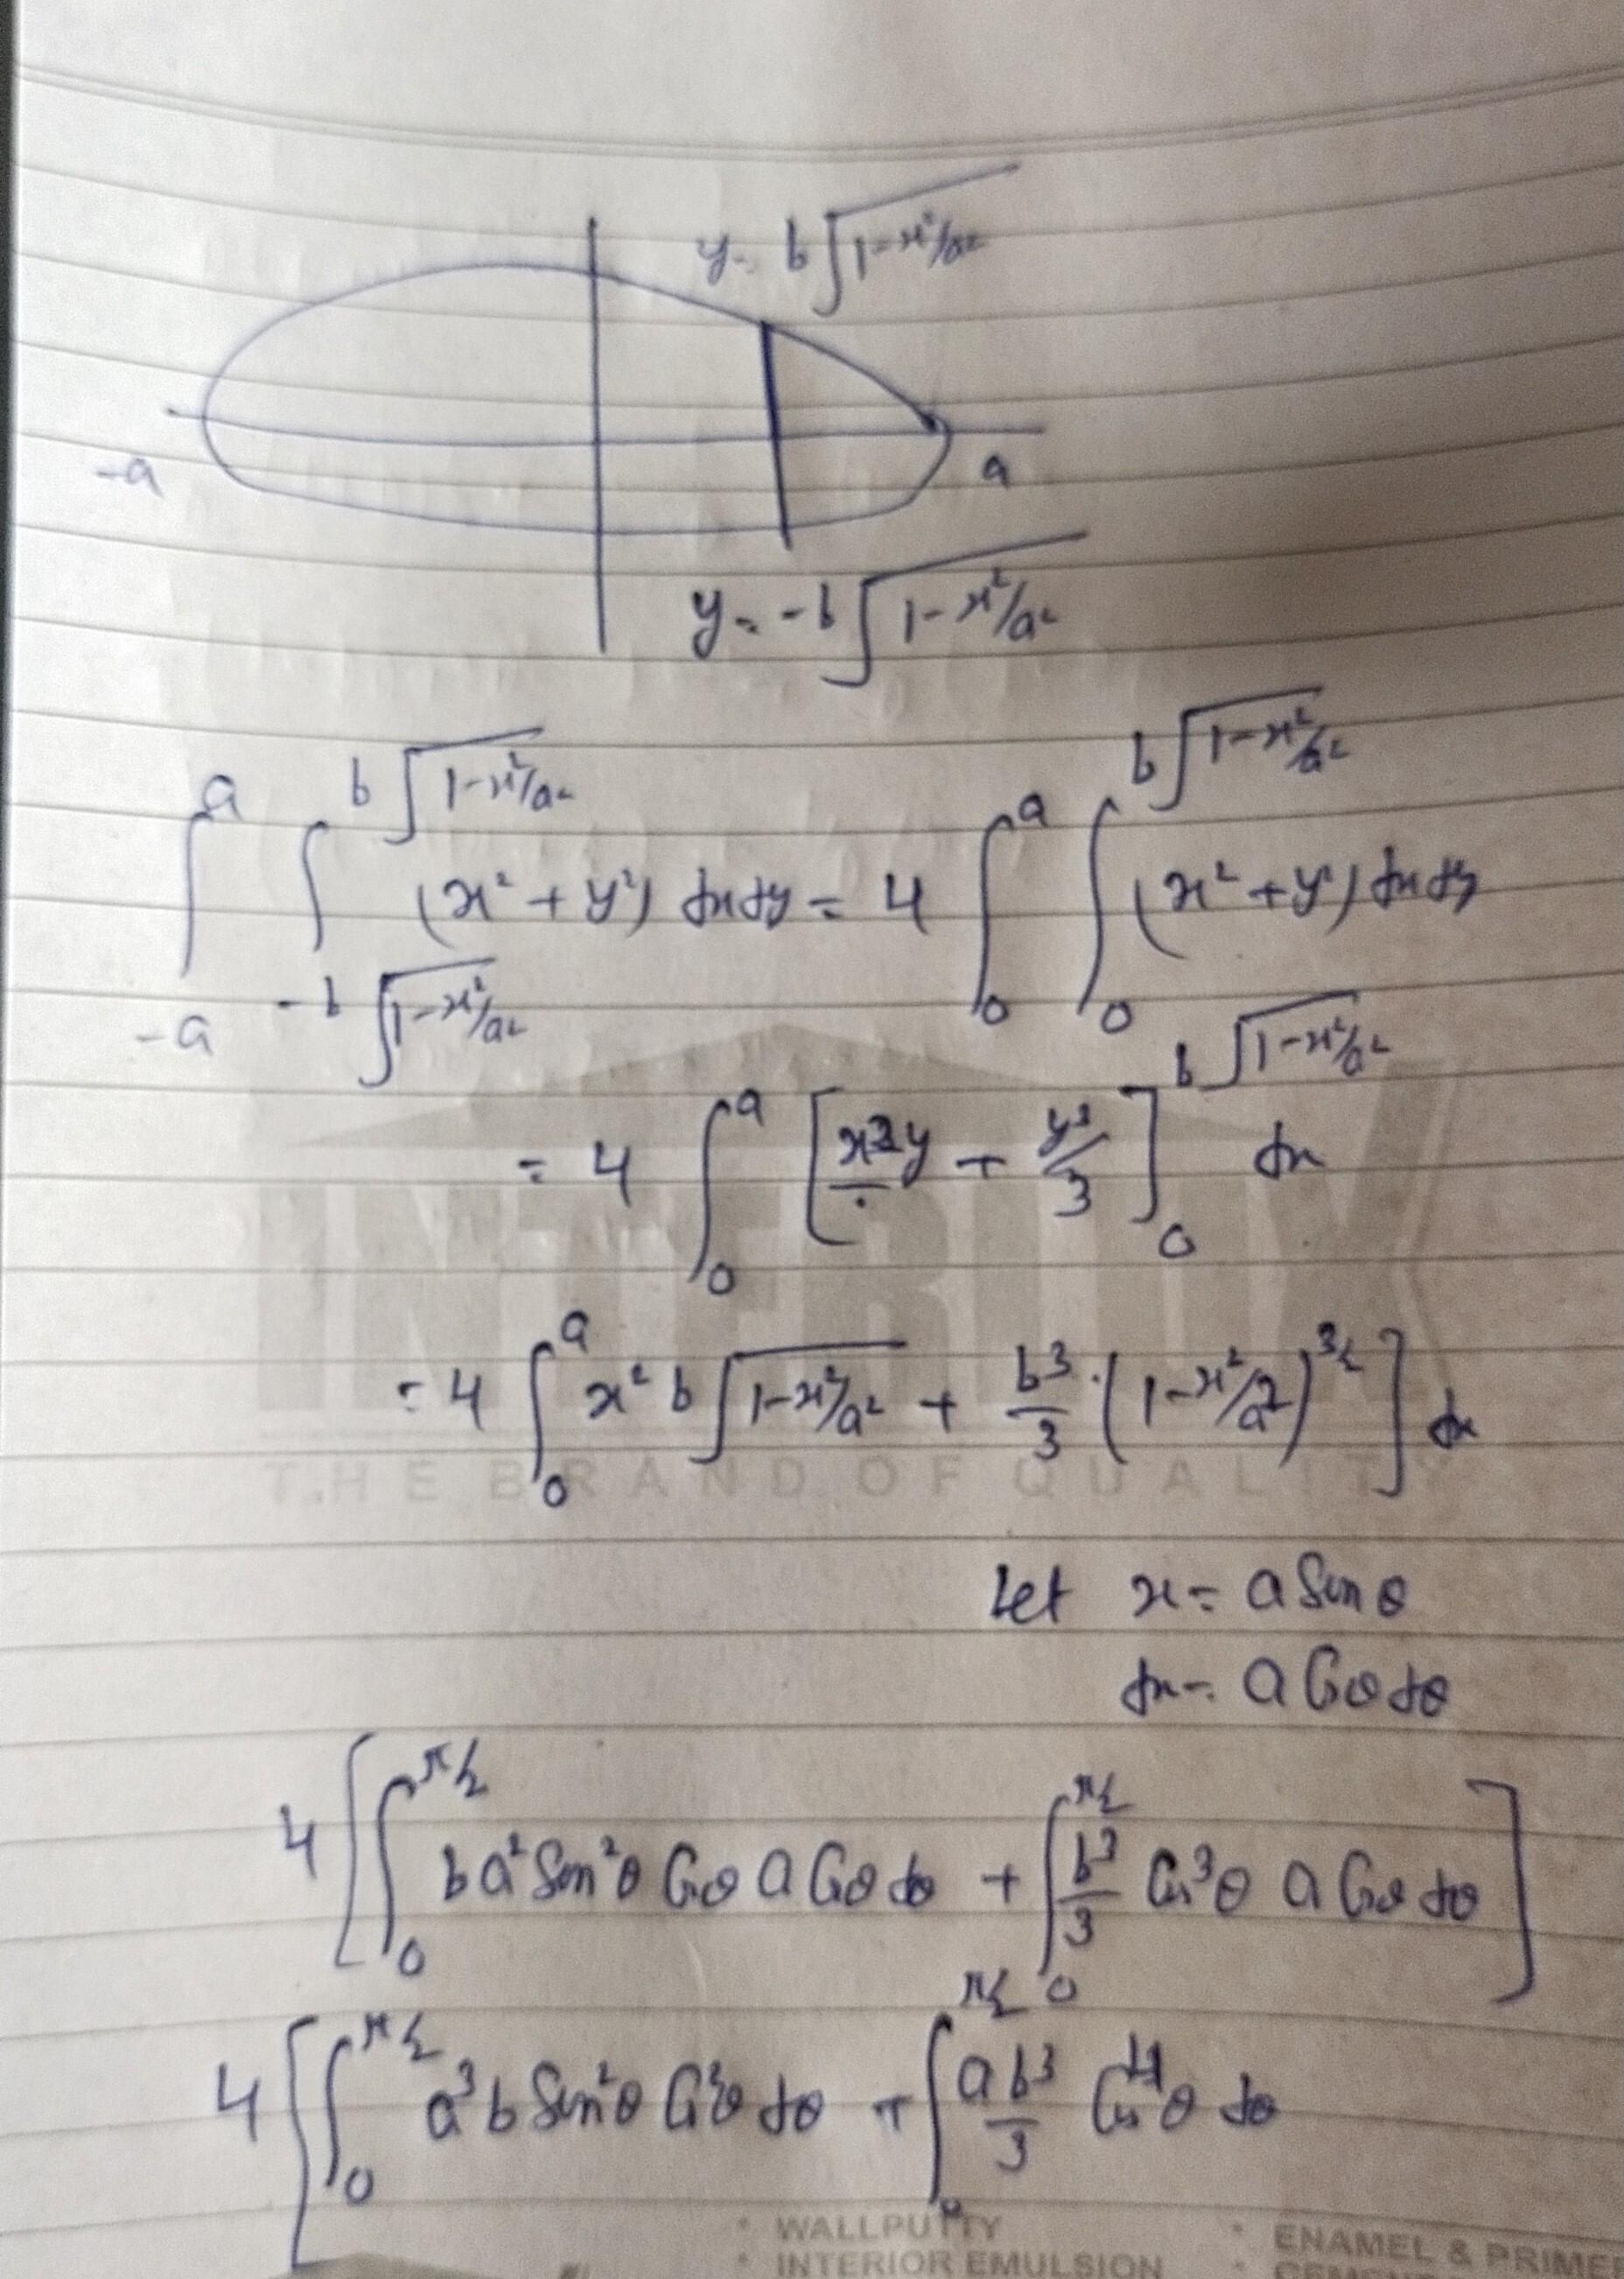 y = b√(1-x²/a²)
-a a
y = -b√(1-x²/a²)
∫_{-a}^{a} ∫_{-b√(1-x²/a²)}^{b√(1-x²/a²)} (x² + y²) dx dy = 4 ∫_0^a ∫_0^{b√(1-x²/a²)} (x² + y²) dx dy
= 4 ∫_0^a [x²y + y³/3]_0^{b√(1-x²/a²)} dx
= 4 ∫_0^a x² b√(1-x²/a²) + b³/3 · (1-x²/a²)^{3/2} ] dx
THE BRAND OF QUALITY
Let x = a Sin θ
dx = a Cos θ dθ
4 [ ∫_0^{π/2} b a² Sin²θ Cos θ a Cos θ dθ + ∫_0^{π/2} b³/3 Cos³θ a Cos θ dθ ]
4 [ ∫_0^{π/2} a³ b Sin²θ Cos²θ dθ + ∫_0^{π/2} ab³/3 Cos⁴θ dθ
• WALLPUTTY • ENAMEL & PRIME
• INTERIOR EMULSION